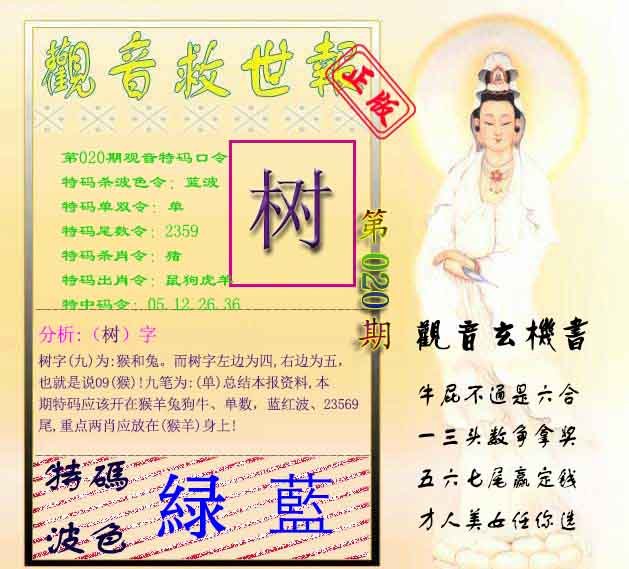 觀音救世報
正版
第020期观音特码口令
特码杀波色令：蓝波
特码单双令：单
特码尾数令：2359
特码杀肖令：猪
特码出肖令：鼠狗虎羊
特中码令：05.12.26.36
树
第020期
分析:（树）字
树字(九)为:猴和兔。而树字左边为四,右边为五，
也就是说09(猴)!九笔为:(单)总结本报资料,本
期特码应该开在猴羊兔狗牛、单数，蓝红波、23569
尾,重点两肖应放在(猴羊)身上!
特碼
波色
緑 藍
觀音玄機書
牛屁不通是六合
一三头数争拿奖
五六七尾赢定钱
才人美女任你选